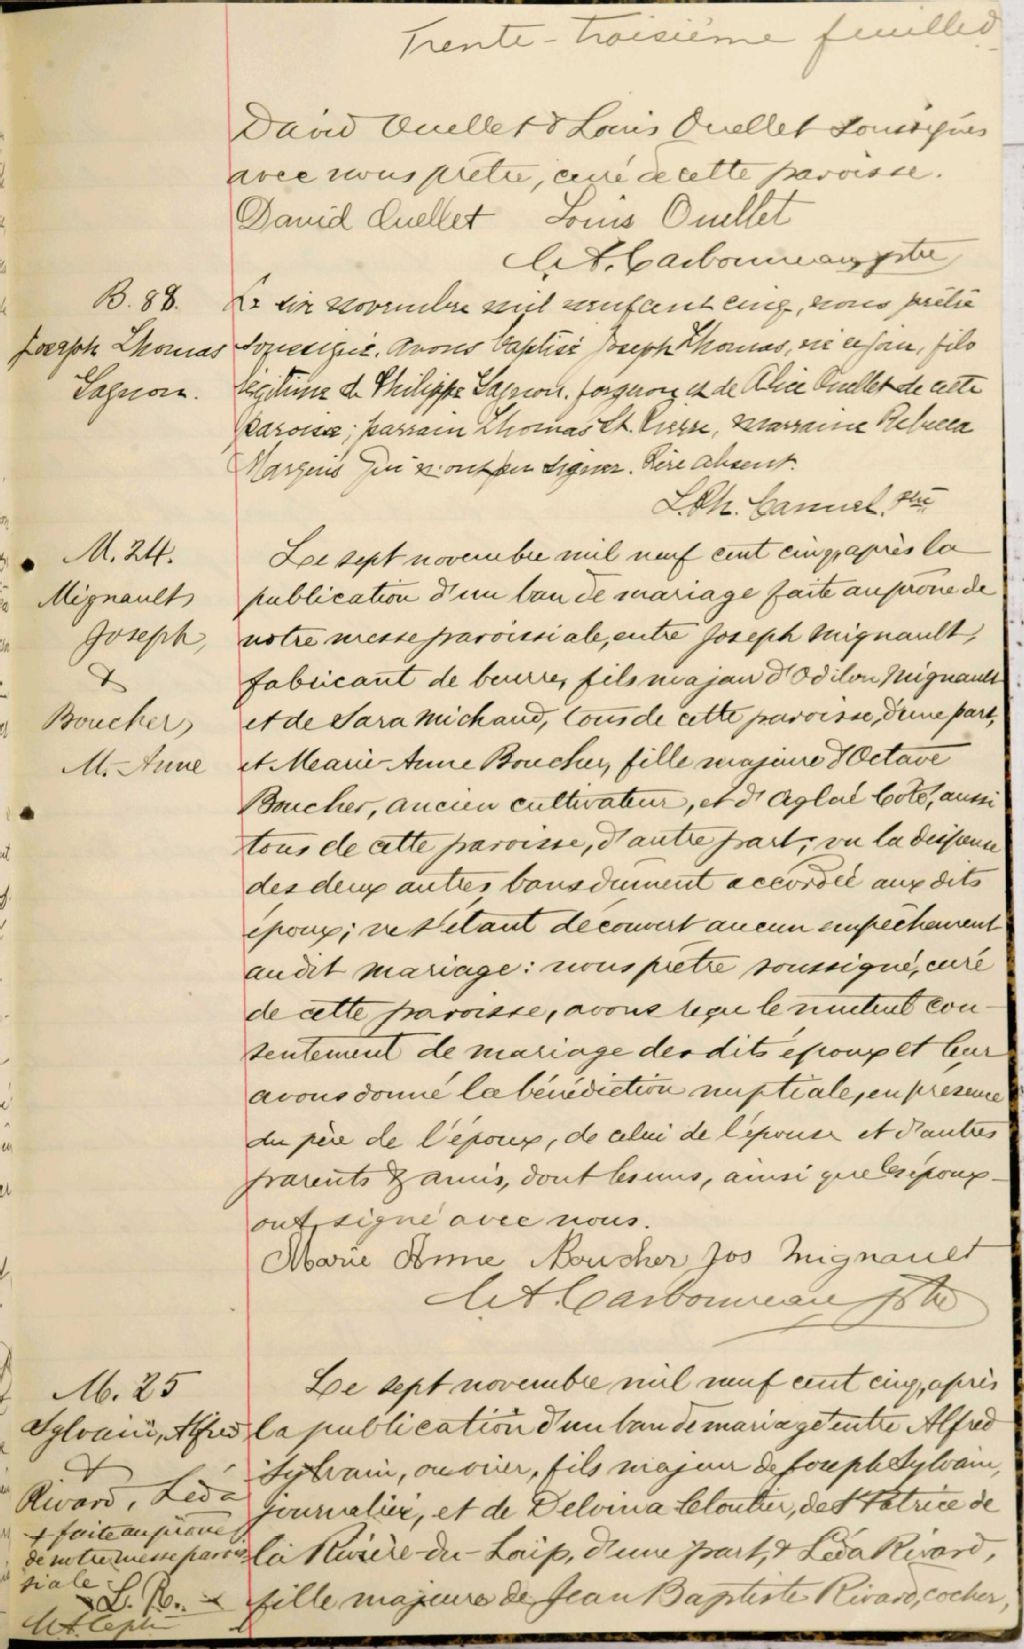 Trente-troisième feuillet
David Ouellet & Louis Ouellet soussignés
avec nous prêtre, curé de cette paroisse.
David Ouellet Louis Ouellet
Carbonneau, ptre
B. 88.
Joseph Thomas
Gagnon.
Le six novembre mil neuf cent cinq, nous prêtre
soussigné, avons baptisé Joseph Thomas, né ce jour, fils
légitime de Philippe Gagnon, forgeron et de Alice Ouellet de cette
paroisse; parrain Thomas St. Pierre, marraine Rebecca
Marquis qui n'ont pu signer. Père absent.
L. Ph. Cannuel, ptre
M. 24.
Mignault,
Joseph,
&
Boucher,
M. Anne
Le sept novembre mil neuf cent cinq, après la
publication d'un ban de mariage faite au prône de
notre messe paroissiale, entre Joseph Mignault,
fabricant de beurre, fils majeur d'Odilon Mignault
et de Sara Michaud, tous de cette paroisse, d'une part,
et Marie-Anne Boucher, fille majeure d'Octave
Boucher, ancien cultivateur, et d'Aglaé Coté, aussi
tous de cette paroisse, d'autre part; vu la dispense
des deux autres bans dûment accordée aux dits
époux; ne s'étant découvert aucun empêchement
au dit mariage: nous prêtre soussigné, curé
de cette paroisse, avons reçu le mutuel con-
sentement de mariage des dits époux et leur
avons donné la bénédiction nuptiale, en présence
du père de l'époux, de celui de l'épouse et d'autres
parents & amis, dont les uns, ainsi que les époux
ont signé avec nous.
Marie Anne Boucher Jos Mignault
Carbonneau ptre
M. 25
Sylvain, Alfred
&
Rivard, Léda
+ faite au prône
de notre messe parois-
siale
L. R.
Le sept novembre mil neuf cent cinq, après
la publication d'un ban de mariage + entre Alfred
Sylvain, ouvrier, fils majeur de Joseph Sylvain,
journalier, et de Delvina Cloutier, de St Patrice de
la Rivière-du-Loup, d'une part, & Léda Rivard,
fille majeure de Jean Baptiste Rivard, cocher,